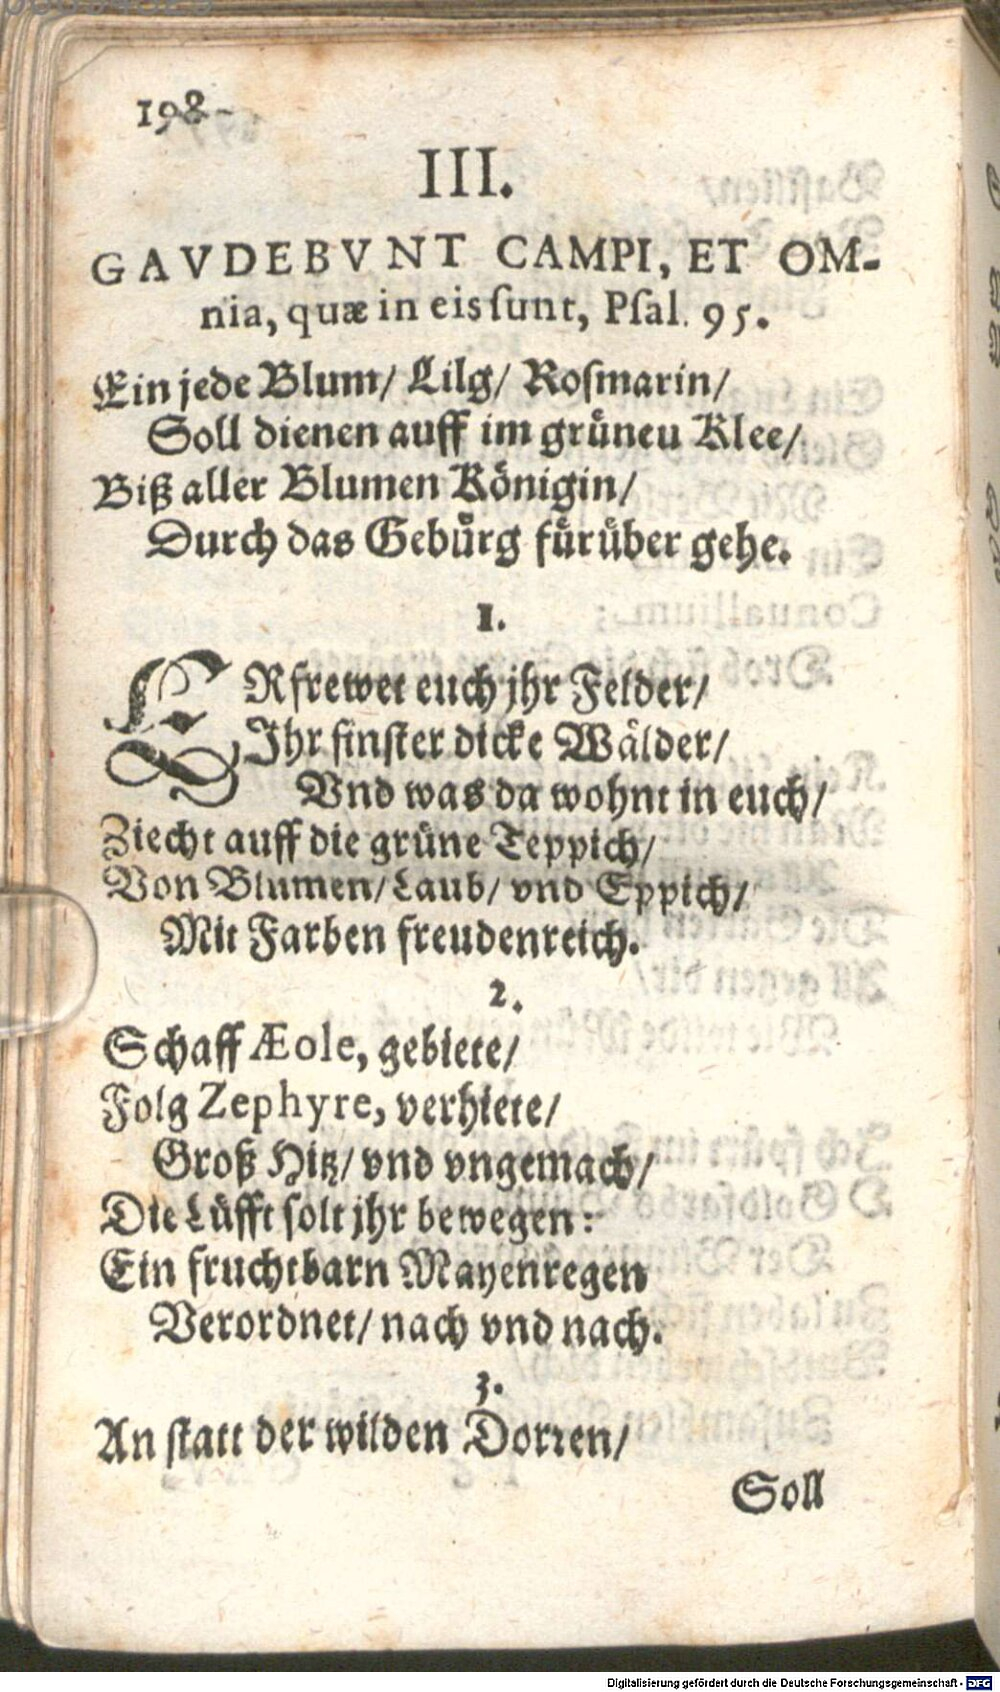 198
III.
GAVDEBVNT CAMPI, ET OM-
nia, quæ in eis ſunt, Pſal. 95.
Ein jede Blum/ Lilg/ Roſmarin/
Soll dienen auff im grüneu Klee/
Biß aller Blumen Königin/
Durch das Gebürg fürüber gehe.
1.
ERfrewet euch jhr Felder/
Jhr finſter dicke Wälder/
Vnd was da wohnt in euch/
Ziecht auff die grüne Teppich/
Von Blumen/ Laub/ vnd Eppich/
Mit Farben freudenreich.
2.
Schaff Æole, gebiete/
Folg Zephyre, verhiete/
Groß Hitz/ vnd vngemach/
Die Lüfft ſolt jhr bewegen:
Ein fruchtbarn Mayenregen
Verordnet/ nach vnd nach.
3.
An ſtatt der wilden Dorꝛen/
Soll
Digitalisierung gefördert durch die Deutsche Forschungsgemeinschaft - DFG